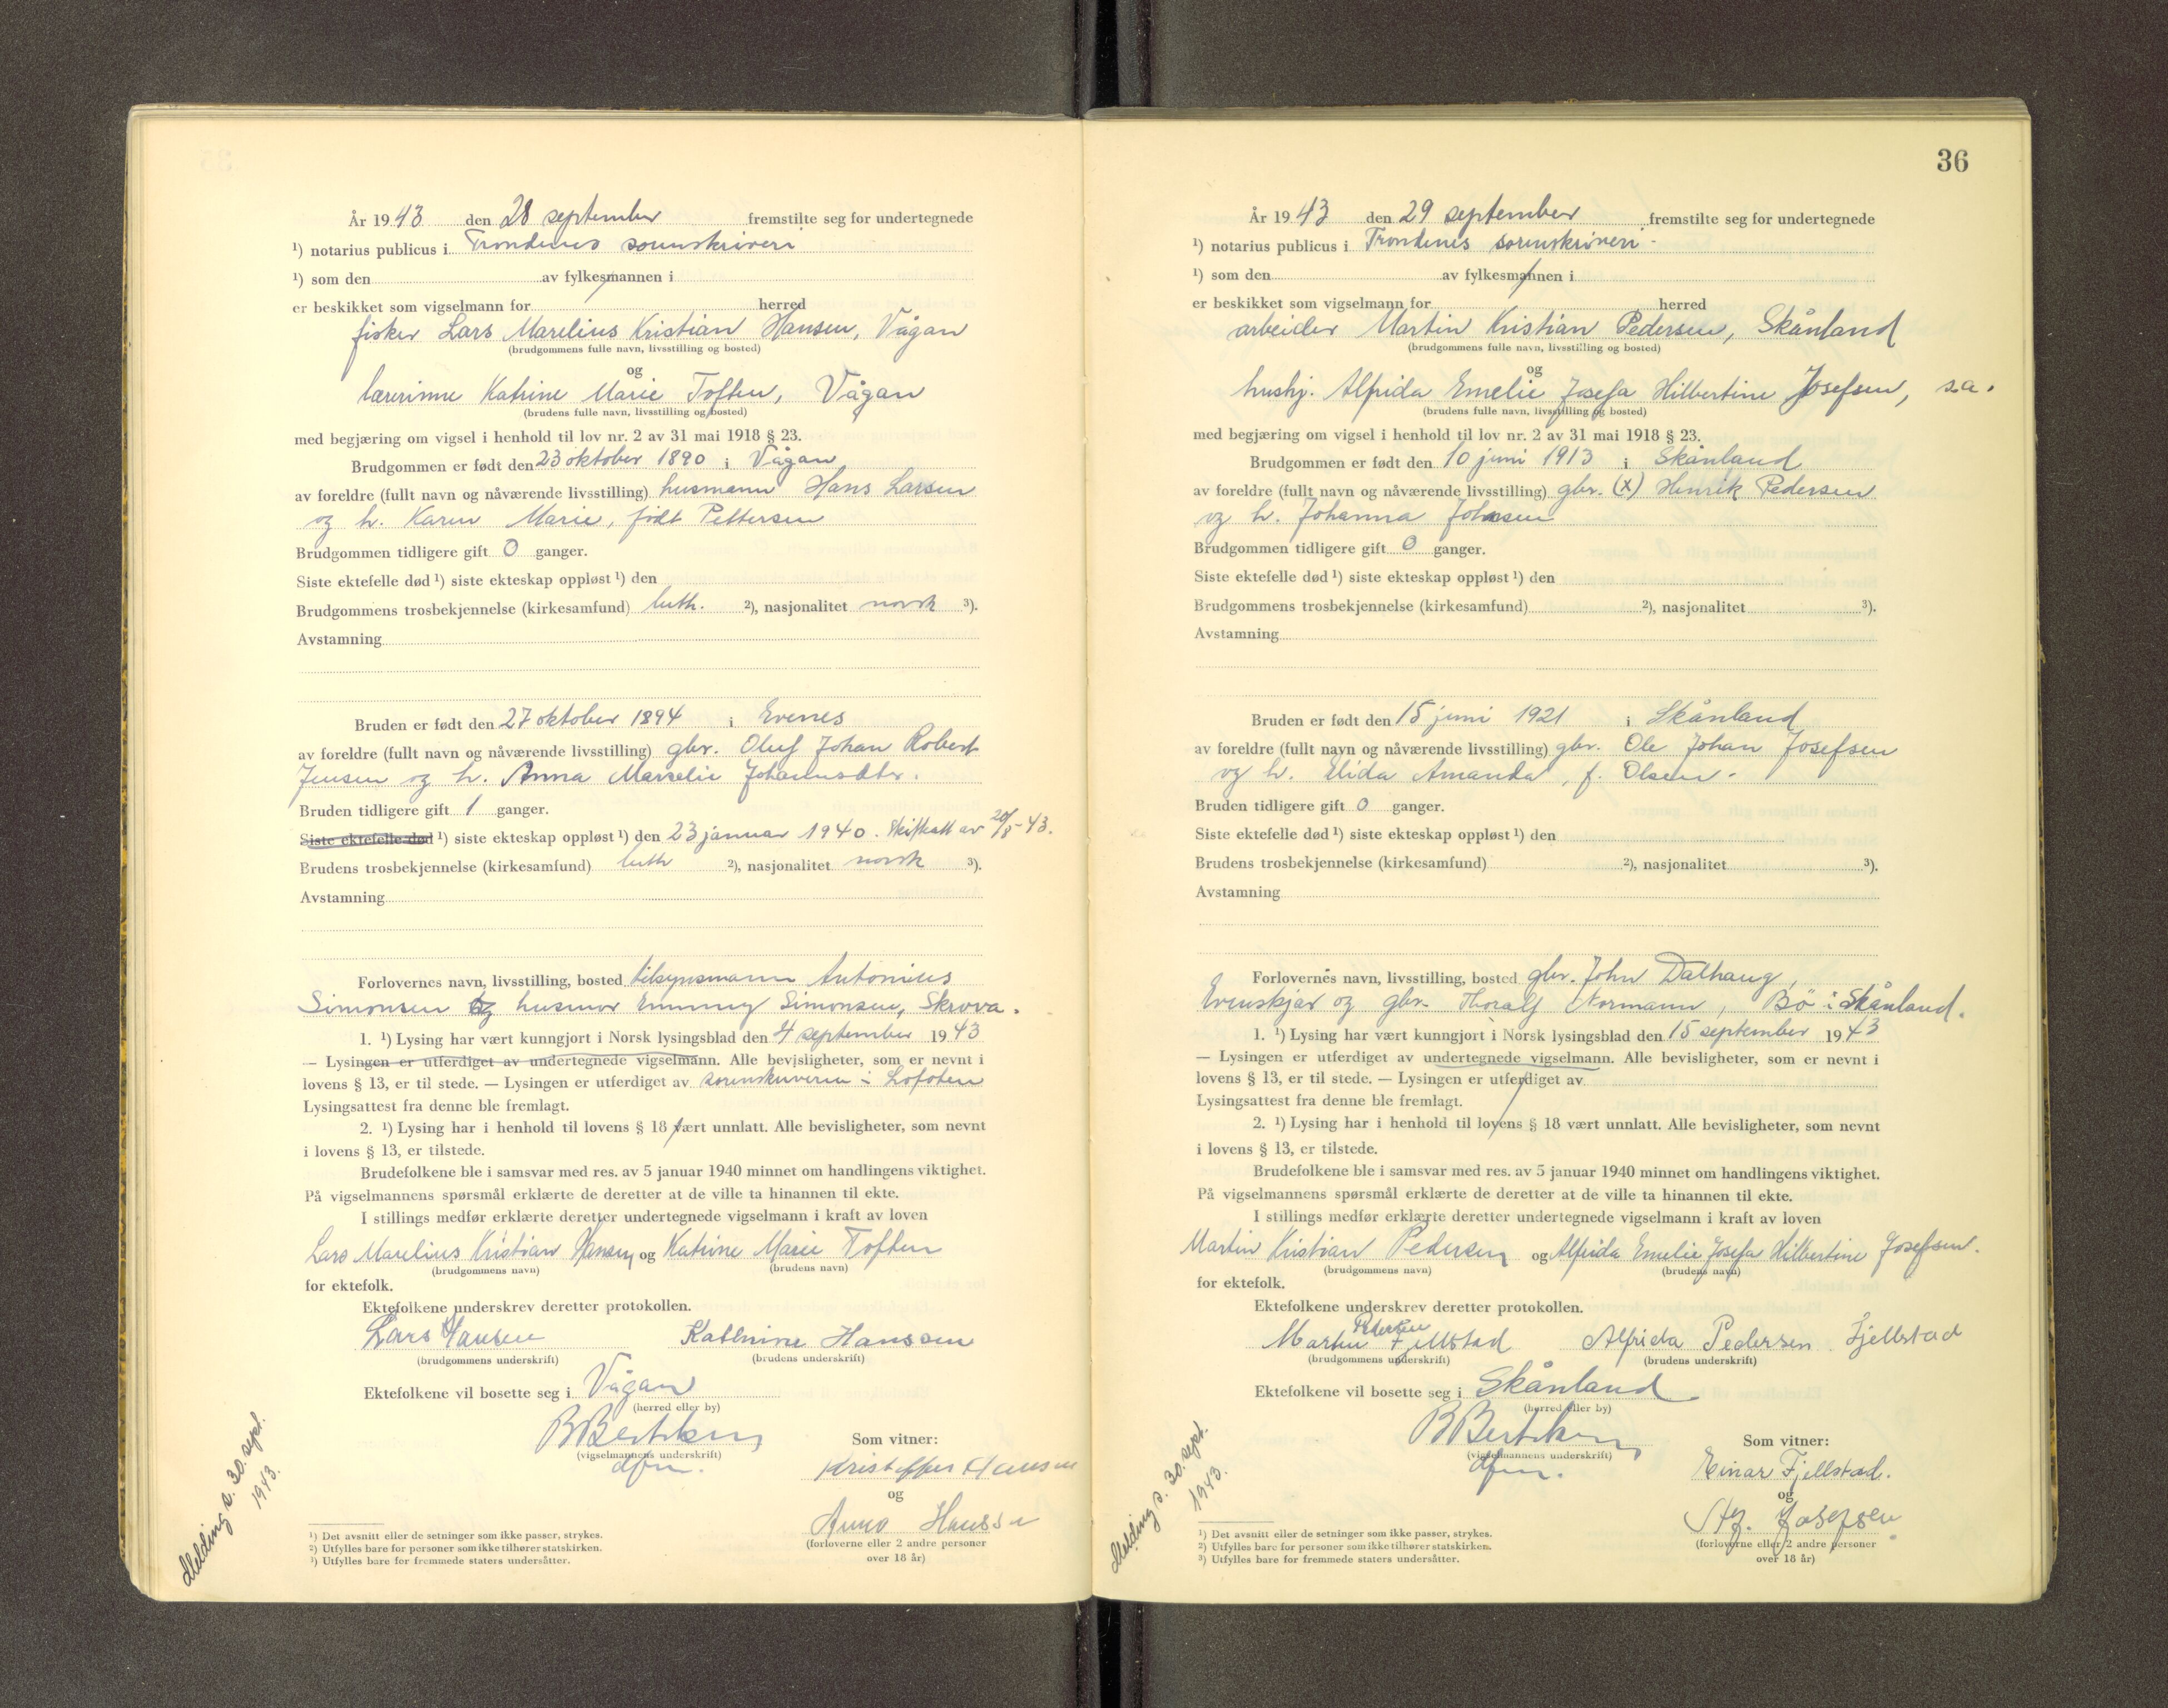 År 1943 den 28 september fremstilte seg for undertegnede
¹) notarius publicus i Trondenes sorenskriveri
¹) som den av fylkesmannen i
er beskikket som vigselmann for herred
fisker Lars Marelius Kristian Hansen, Vågan
(brudgommens fulle navn, livsstilling og bosted)
og
lærerinne Katrine Marie Toften, Vågan
(brudens fulle navn, livsstilling og bosted)
med begjæring om vigsel i henhold til lov nr. 2 av 31 mai 1918 § 23.
Brudgommen er født den 23 oktober 1890 i Vågan
av foreldre (fullt navn og nåværende livsstilling) husmann Hans Larsen
og h. Karen Marie, født Pettersen
Brudgommen tidligere gift 0 ganger.
Siste ektefelle død ¹) siste ekteskap oppløst ¹) den
Brudgommens trosbekjennelse (kirkesamfund) luth. ²), nasjonalitet norsk ³).
Avstamning
Bruden er født den 27 oktober 1894 i Evenes
av foreldre (fullt navn og nåværende livsstilling) gbr. Oluf Johan Robert
Jensen og h. Anna Marselie Johannsdtr.
Bruden tidligere gift 1 ganger.
Siste ektefelle død ¹) siste ekteskap oppløst ¹) den 23 januar 1940. Skifteatt av 20/8-43.
Brudens trosbekjennelse (kirkesamfund) luth ²), nasjonalitet norsk ³).
Avstamning
Forlovernes navn, livsstilling, bosted tilsynsmann Antonius
Simonsen og husmor Emmy Simonsen, Skrova.
1. ¹) Lysing har vært kunngjort i Norsk lysingsblad den 4 september 1943
— Lysingen er utferdiget av undertegnede vigselmann. Alle bevisligheter, som er nevnt i
lovens § 13, er til stede. — Lysingen er utferdiget av sorenskriveren i Lofoten
Lysingsattest fra denne ble fremlagt.
2. ¹) Lysing har i henhold til lovens § 18 vært unnlatt. Alle bevisligheter, som nevnt
i lovens § 13, er tilstede.
Brudefolkene ble i samsvar med res. av 5 januar 1940 minnet om handlingens viktighet.
På vigselmannens spørsmål erklærte de deretter at de ville ta hinannen til ekte.
I stillings medfør erklærte deretter undertegnede vigselmann i kraft av loven
Lars Marelius Kristian Hansen og Katrine Marie Toften
(brudgommens navn) (brudens navn)
for ektefolk.
Ektefolkene underskrev deretter protokollen.
Lars Hansen Kathrine Hanssen
(brudgommens underskrift) (brudens underskrift)
Ektefolkene vil bosette seg i Vågan
(herred eller by)
BBertelsen
(vigselmannens underskrift)
dfm.
Som vitner:
Kristoffer Hansen
og
Anna Hanssen
(forloverne eller 2 andre personer
over 18 år)
Melding s. 30. sept.
1943.
¹) Det avsnitt eller de setninger som ikke passer, strykes.
²) Utfylles bare for personer som ikke tilhører statskirken.
³) Utfylles bare for fremmede staters undersåtter.
36
År 1943 den 29 september fremstilte seg for undertegnede
¹) notarius publicus i Trondenes sorenskriveri
¹) som den av fylkesmannen i
er beskikket som vigselmann for herred
arbeider Martin Kristian Pedersen, Skånland
(brudgommens fulle navn, livsstilling og bosted)
og
hushj. Alfrida Emelie Josefa Hilbertine Josefsen, s.a.
(brudens fulle navn, livsstilling og bosted)
med begjæring om vigsel i henhold til lov nr. 2 av 31 mai 1918 § 23.
Brudgommen er født den 10 juni 1913 i Skånland
av foreldre (fullt navn og nåværende livsstilling) gbr. (x) Henrik Pedersen
og h. Johanna Johnsen
Brudgommen tidligere gift 0 ganger.
Siste ektefelle død ¹) siste ekteskap oppløst ¹) den
Brudgommens trosbekjennelse (kirkesamfund) ²), nasjonalitet ³).
Avstamning
Bruden er født den 15 juni 1921 i Skånland
av foreldre (fullt navn og nåværende livsstilling) gbr. Ole Johan Josefsen
og h. Elida Amanda, f. Olsen.
Bruden tidligere gift 0 ganger.
Siste ektefelle død ¹) siste ekteskap oppløst ¹) den
Brudens trosbekjennelse (kirkesamfund) ²), nasjonalitet ³).
Avstamning
Forlovernes navn, livsstilling, bosted gbr. John Dalhaug,
Evenskjær og gbr. Thoralf Normann, Bö i Skånland.
1. ¹) Lysing har vært kunngjort i Norsk lysingsblad den 15 september 1943
— Lysingen er utferdiget av undertegnede vigselmann. Alle bevisligheter, som er nevnt i
lovens § 13, er til stede. — Lysingen er utferdiget av
Lysingsattest fra denne ble fremlagt.
2. ¹) Lysing har i henhold til lovens § 18 vært unnlatt. Alle bevisligheter, som nevnt
i lovens § 13, er tilstede.
Brudefolkene ble i samsvar med res. av 5 januar 1940 minnet om handlingens viktighet.
På vigselmannens spørsmål erklærte de deretter at de ville ta hinannen til ekte.
I stillings medfør erklærte deretter undertegnede vigselmann i kraft av loven
Martin Kristian Pedersen og Alfrida Emelie Josefa Hilbertine Josefsen.
(brudgommens navn) (brudens navn)
for ektefolk.
Ektefolkene underskrev deretter protokollen.
Martin Pedersen Fjellstad Alfrida Pedersen Fjellstad
(brudgommens underskrift) (brudens underskrift)
Ektefolkene vil bosette seg i Skånland
(herred eller by)
BBertelsen
(vigselmannens underskrift)
dfm.
Som vitner:
Einar Fjellstad.
og
Josefsen
(forloverne eller 2 andre personer
over 18 år)
Melding s. 30. sept.
1943.
¹) Det avsnitt eller de setninger som ikke passer, strykes.
²) Utfylles bare for personer som ikke tilhører statskirken.
³) Utfylles bare for fremmede staters undersåtter.